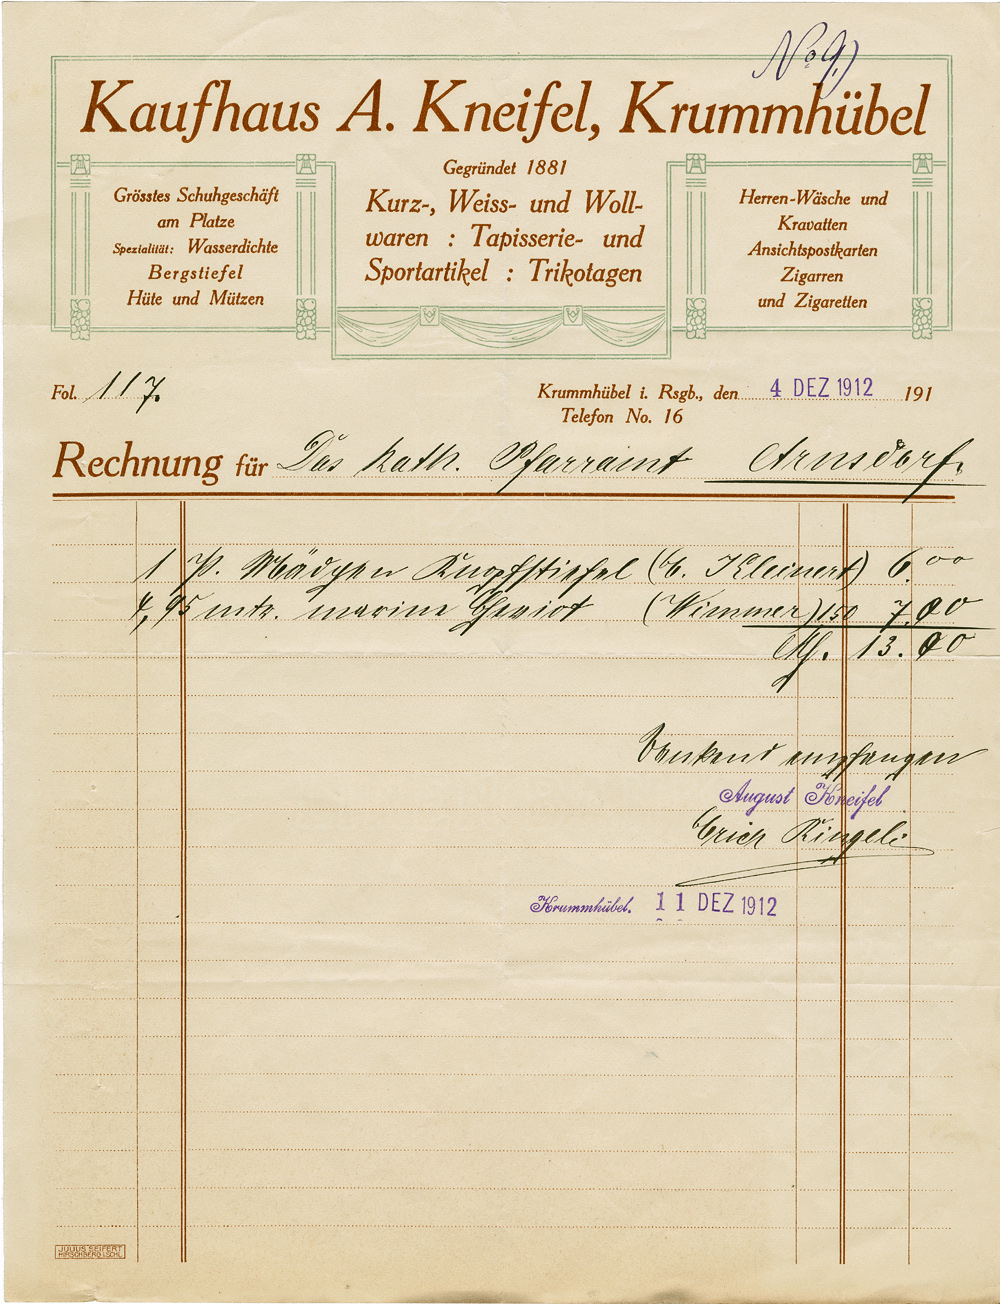 No 9.)
Kaufhaus A. Kneifel, Krummhübel
Grösstes Schuhgeschäft
am Platze
Spezialität: Wasserdichte
Bergstiefel
Hüte und Mützen
Gegründet 1881
Kurz-, Weiss- und Woll-
waren : Tapisserie- und
Sportartikel : Trikotagen
Herren-Wäsche und
Kravatten
Ansichtspostkarten
Zigarren
und Zigaretten
Fol. 117.
Krummhübel i. Rsgb., den 4 DEZ 1912 191
Telefon No. 16
Rechnung für Das kath. Pfarramt Arnsdorf.
1 P. Mädchen Knopfstiefel (b. Kleinert) 6.00
4,95 mtr. marine Cheviot (Wimmer) 150 7.00
M. 13.00
Dankend empfangen
August Kneifel
Erich
Krummhübel. 11 DEZ 1912
JULIUS SEIFERT
HIRSCHBERG i. SCHL.